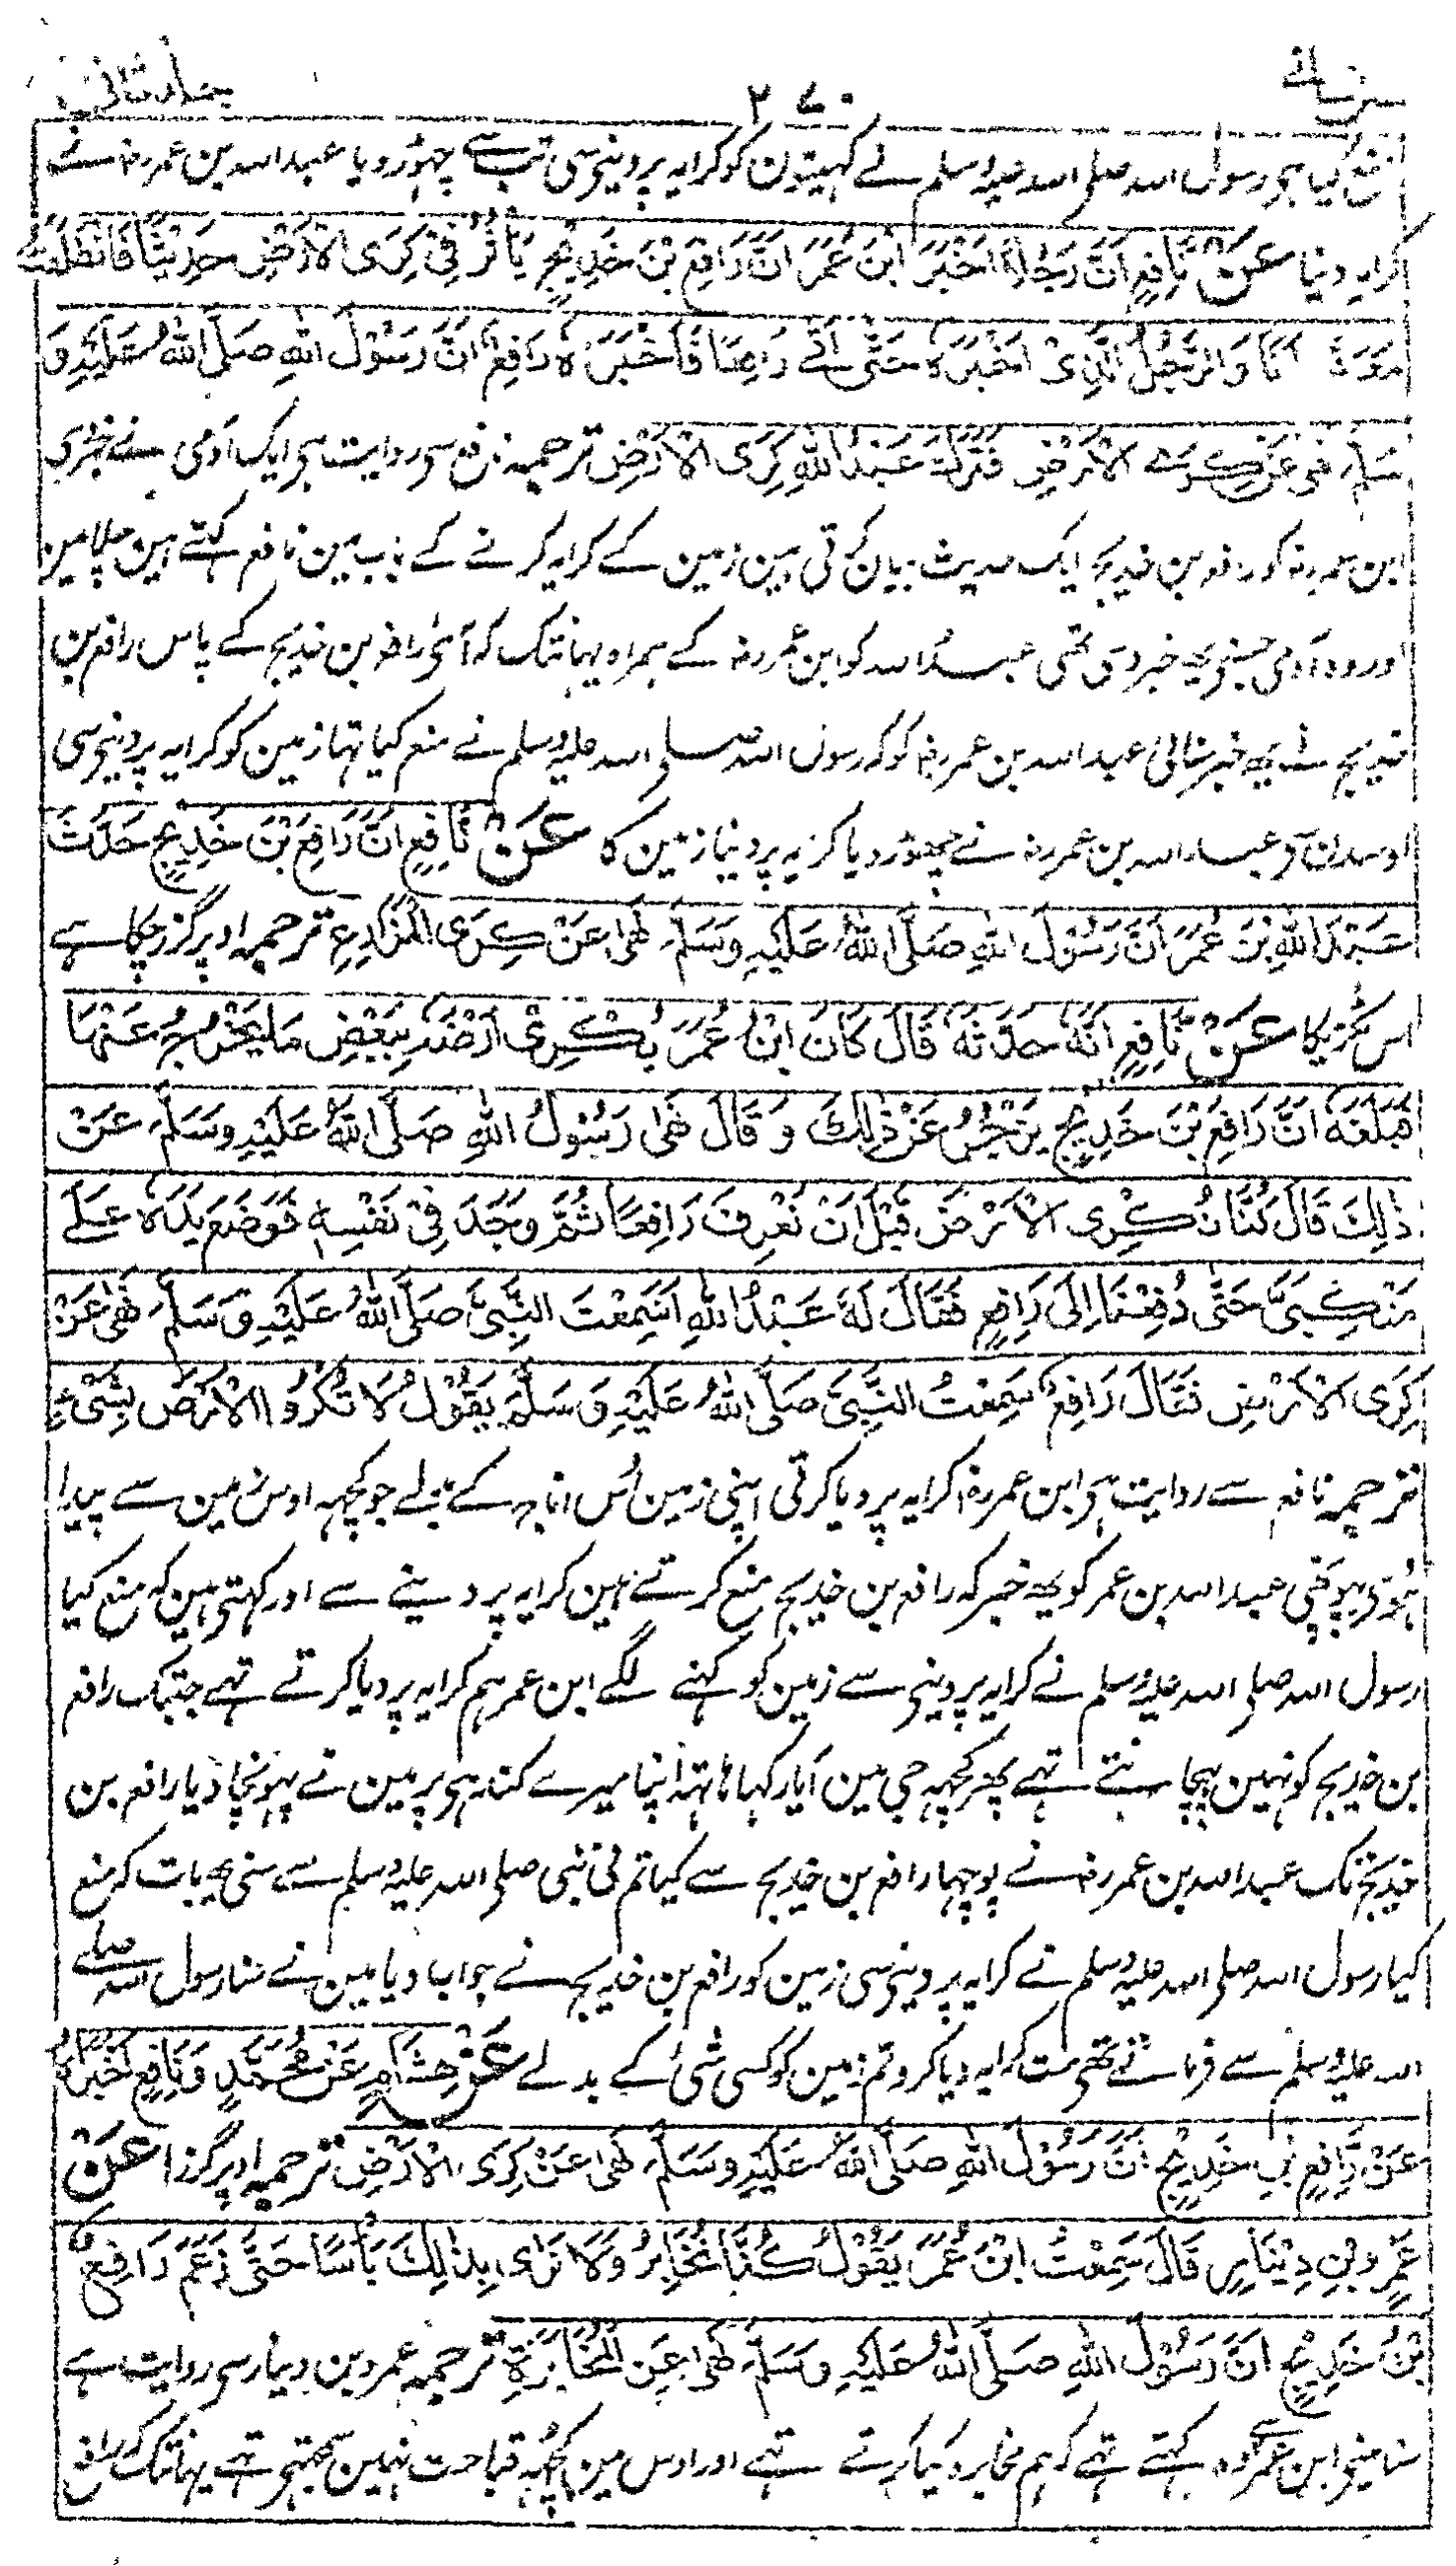 سنن نسائے ۲۷۰ جلد ثانی
منع کیا ہی رسول اللہ صلی اللہ علیہ وسلم نے کہیتون کو کرایہ پر دینی سی تب سے چہوڑ دیا عبد اللہ بن عمر رضہ نے
کرایہ دینا عَنْ نَافِعٍ اَنَّ رَجُلًا اَخْبَرَ ابْنَ عُمَرَ اَنَّ رَافِعَ بْنَ خَدِيْجٍ يَاْثُرُ فِيْ كِرَى الْاَرْضِ حَدِيْثًا فَانْطَلَقْتُ
مَعَهٗ اَنَا وَالرَّجُلُ الَّذِىْ اَخْبَرَهٗ حَتّٰى اَتٰے رَافِعًا فَاَخْبَرَهٗ رَافِعٌ اَنَّ رَسُوْلَ اللهِ صَلَّى اللهُ عَلَيْهِ وَ
سَلَّمَ نَهٰى عَنْ كِرَے الْاَرْضِ فَتَرَكَ عَبْدُ اللهِ كِرَى الْاَرْضِ ترجمہ نافع سی روایت ہی ایک آدمی نے خبر دی
ابن عمر رضہ کو رافع بن خدیج ایک حدیث بیان کرتی ہین زمین کے کرایہ کرنے کے باب مین نافع کہتے ہین چلا مین
اور وہ آدمی جسنی یہ خبر دی تہی عبد اللہ کو ابن عمر رضہ کے ہمراہ یہانتک کہ آئی رافع بن خدیج کے پاس رافع بن
خدیج نے یہ خبر سنائی عبد اللہ بن عمر رضہ کو کہ رسول اللہ صلی اللہ علیہ وسلم نے منع کیا تہا زمین کو کرایہ پر دینی سی
اوسدن سے عبد اللہ بن عمر رضہ نے چہوڑ دیا کرایہ پر دینا زمین کا عَنْ نَافِعٍ اَنَّ رَافِعَ بْنَ خَدِيْجٍ حَدَّثَ
عَبْدَ اللهِ بْنَ عُمَرَ اَنَّ رَسُوْلَ اللهِ صَلَّى اللهُ عَلَيْهِ وَسَلَّمَ نَهٰى عَنْ كِرَى الْمَزَارِعِ ترجمہ اوپر گزر چکا ہے
اس حدیث کا عَنْ نَافِعٍ اَنَّهٗ حَدَّثَهٗ قَالَ كَانَ ابْنُ عُمَرَ يُكْرِىْ اَرْضَهٗ بِبَعْضِ مَا يَخْرُجُ عَنْهَا
فَبَلَغَهٗ اَنَّ رَافِعَ بْنَ خَدِيْجٍ يَزْجُرُ عَنْ ذٰلِكَ وَ قَالَ نَهٰى رَسُوْلُ اللهِ صَلَّى اللهُ عَلَيْهِ وَسَلَّمَ عَنْ
ذٰلِكَ قَالَ كُنَّا نُكْرِى الْاَرْضَ قَبْلَ اَنْ نَعْرِفَ رَافِعًا ثُمَّ وَجَدَ فِيْ نَفْسِهٖ فَوَضَعَ يَدَهٗ عَلٰے
مَنْكِبِىَّ حَتّٰى دُفِعْنَا اِلٰى رَافِعٍ فَقَالَ لَهٗ عَبْدُ اللهِ اَسَمِعْتَ النَّبِىَّ صَلَّى اللهُ عَلَيْهِ وَسَلَّمَ نَهٰى عَنْ
كِرَى الْاَرْضِ فَقَالَ رَافِعٌ سَمِعْتُ النَّبِىَّ صَلَّى اللهُ عَلَيْهِ وَسَلَّمَ يَقُوْلُ لَا تُكْرُوا الْاَرْضَ بِشَىْءٍ
ترجمہ نافع سے روایت ہی ابن عمر رضہ کرایہ پر دیا کرتی اپنی زمین اُس اناج کے بدلے جو کچہہ اوس زمین سے پیدا
ہوتی پہونچی عبد اللہ بن عمر کو یہ خبر کہ رافع بن خدیج منع کرتے ہین کرایہ پر دینے سے اور کہتی ہین کہ منع کیا
رسول اللہ صلی اللہ علیہ وسلم نے کرایہ پر دینی سے زمین کو کہنے لگے ابن عمر ہم کرایہ پر دیا کرتے تہے جبتک رافع
بن خدیج کو نہین پہچانتے تہے پھر کچہہ جی مین آیا رکہا ہاتہہ اپنا میرے کندہی پر مین نے پہونچا دیا رافع بن
خدیج تک عبد اللہ بن عمر رضہ نے پوچہا رافع بن خدیج سے کیا تم نی نبی صلی اللہ علیہ وسلم سے سنی یہ بات کہ منع
کیا رسول اللہ صلی اللہ علیہ وسلم نے کرایہ پر دینی سی زمین کو رافع بن خدیج نے جواب دیا مین نے سنا رسول اللہ صلے
اللہ علیہ وسلم سے فرماتے تہی مت کرایہ دیا کرو تم زمین کو کسی شئ کے بدلے عَنْ هِشَامٍ عَنْ مُحَمَّدٍ وَنَافِعٍ اَخْبَرَاهُ
عَنْ رَافِعِ بْنِ خَدِيْجٍ اَنَّ رَسُوْلَ اللهِ صَلَّى اللهُ عَلَيْهِ وَسَلَّمَ نَهٰى عَنْ كِرَى الْاَرْضِ ترجمہ اوپر گزرا عَنْ
عَمْرِو بْنِ دِيْنَارٍ قَالَ سَمِعْتُ ابْنَ عُمَرَ يَقُوْلُ كُنَّا نُخَابِرُ وَلَا نَرٰى بِذٰلِكَ بَأْسًا حَتّٰى زَعَمَ رَافِعُ
بْنُ خَدِيْجٍ اَنَّ رَسُوْلَ اللهِ صَلَّى اللهُ عَلَيْهِ وَسَلَّمَ نَهٰى عَنِ الْمُخَابَرَةِ ترجمہ عمرو بن دینار سی روایت ہے
سنا مینی ابن عمر سے وہ کہتے تہے کہ ہم مخابرہ کیا کرتے تہے اور اوس مین کچہہ قباحت نہین سمجہتی تہے یہانتک کہ رافع